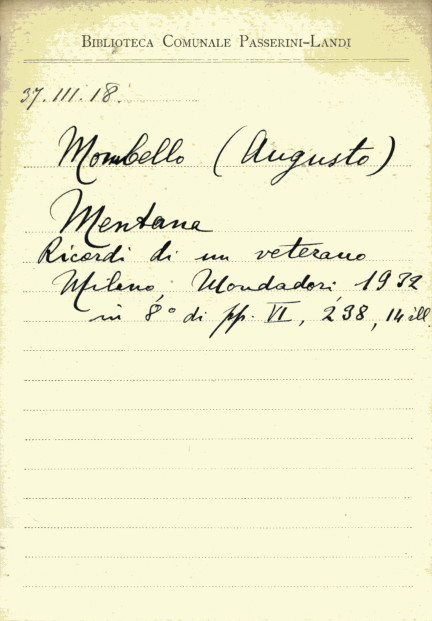 BIBLIOTECA COMUNALE PASSERINI-LANDI
37.III.18.
Mombello (Augusto)
Mentana
Ricordi di un veterano
Milano Mondadori 1932
in 8° di pp. VI, 238, 14 ill.